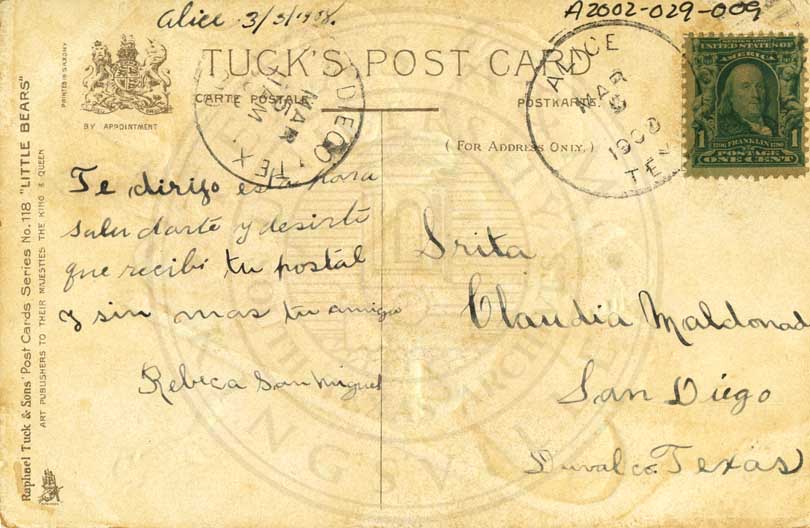 Alice 3/5/1908.
A2002-029-009
TUCK'S POST CARD
CARTE POSTALE
POSTKARTE.
(FOR ADDRESS ONLY.)
BY APPOINTMENT
PRINTED IN SAXONY
Raphael Tuck & Sons' Post Cards Series No. 118 "LITTLE BEARS"
ART PUBLISHERS TO THEIR MAJESTIES THE KING & QUEEN
DIEGO, TEX
MAR
AM
ALICE
MAR
1908
TEX
UNITED STATES OF
AMERICA
1 FRANKLIN 1
POSTAGE
ONE CENT
Te dirijo esta para
saludarte y desirte
que recibi tu postal
y sin mas tu amiga
Rebeca San Miguel
Srita
Claudia Maldonad
San Diego
Duval co. Texas